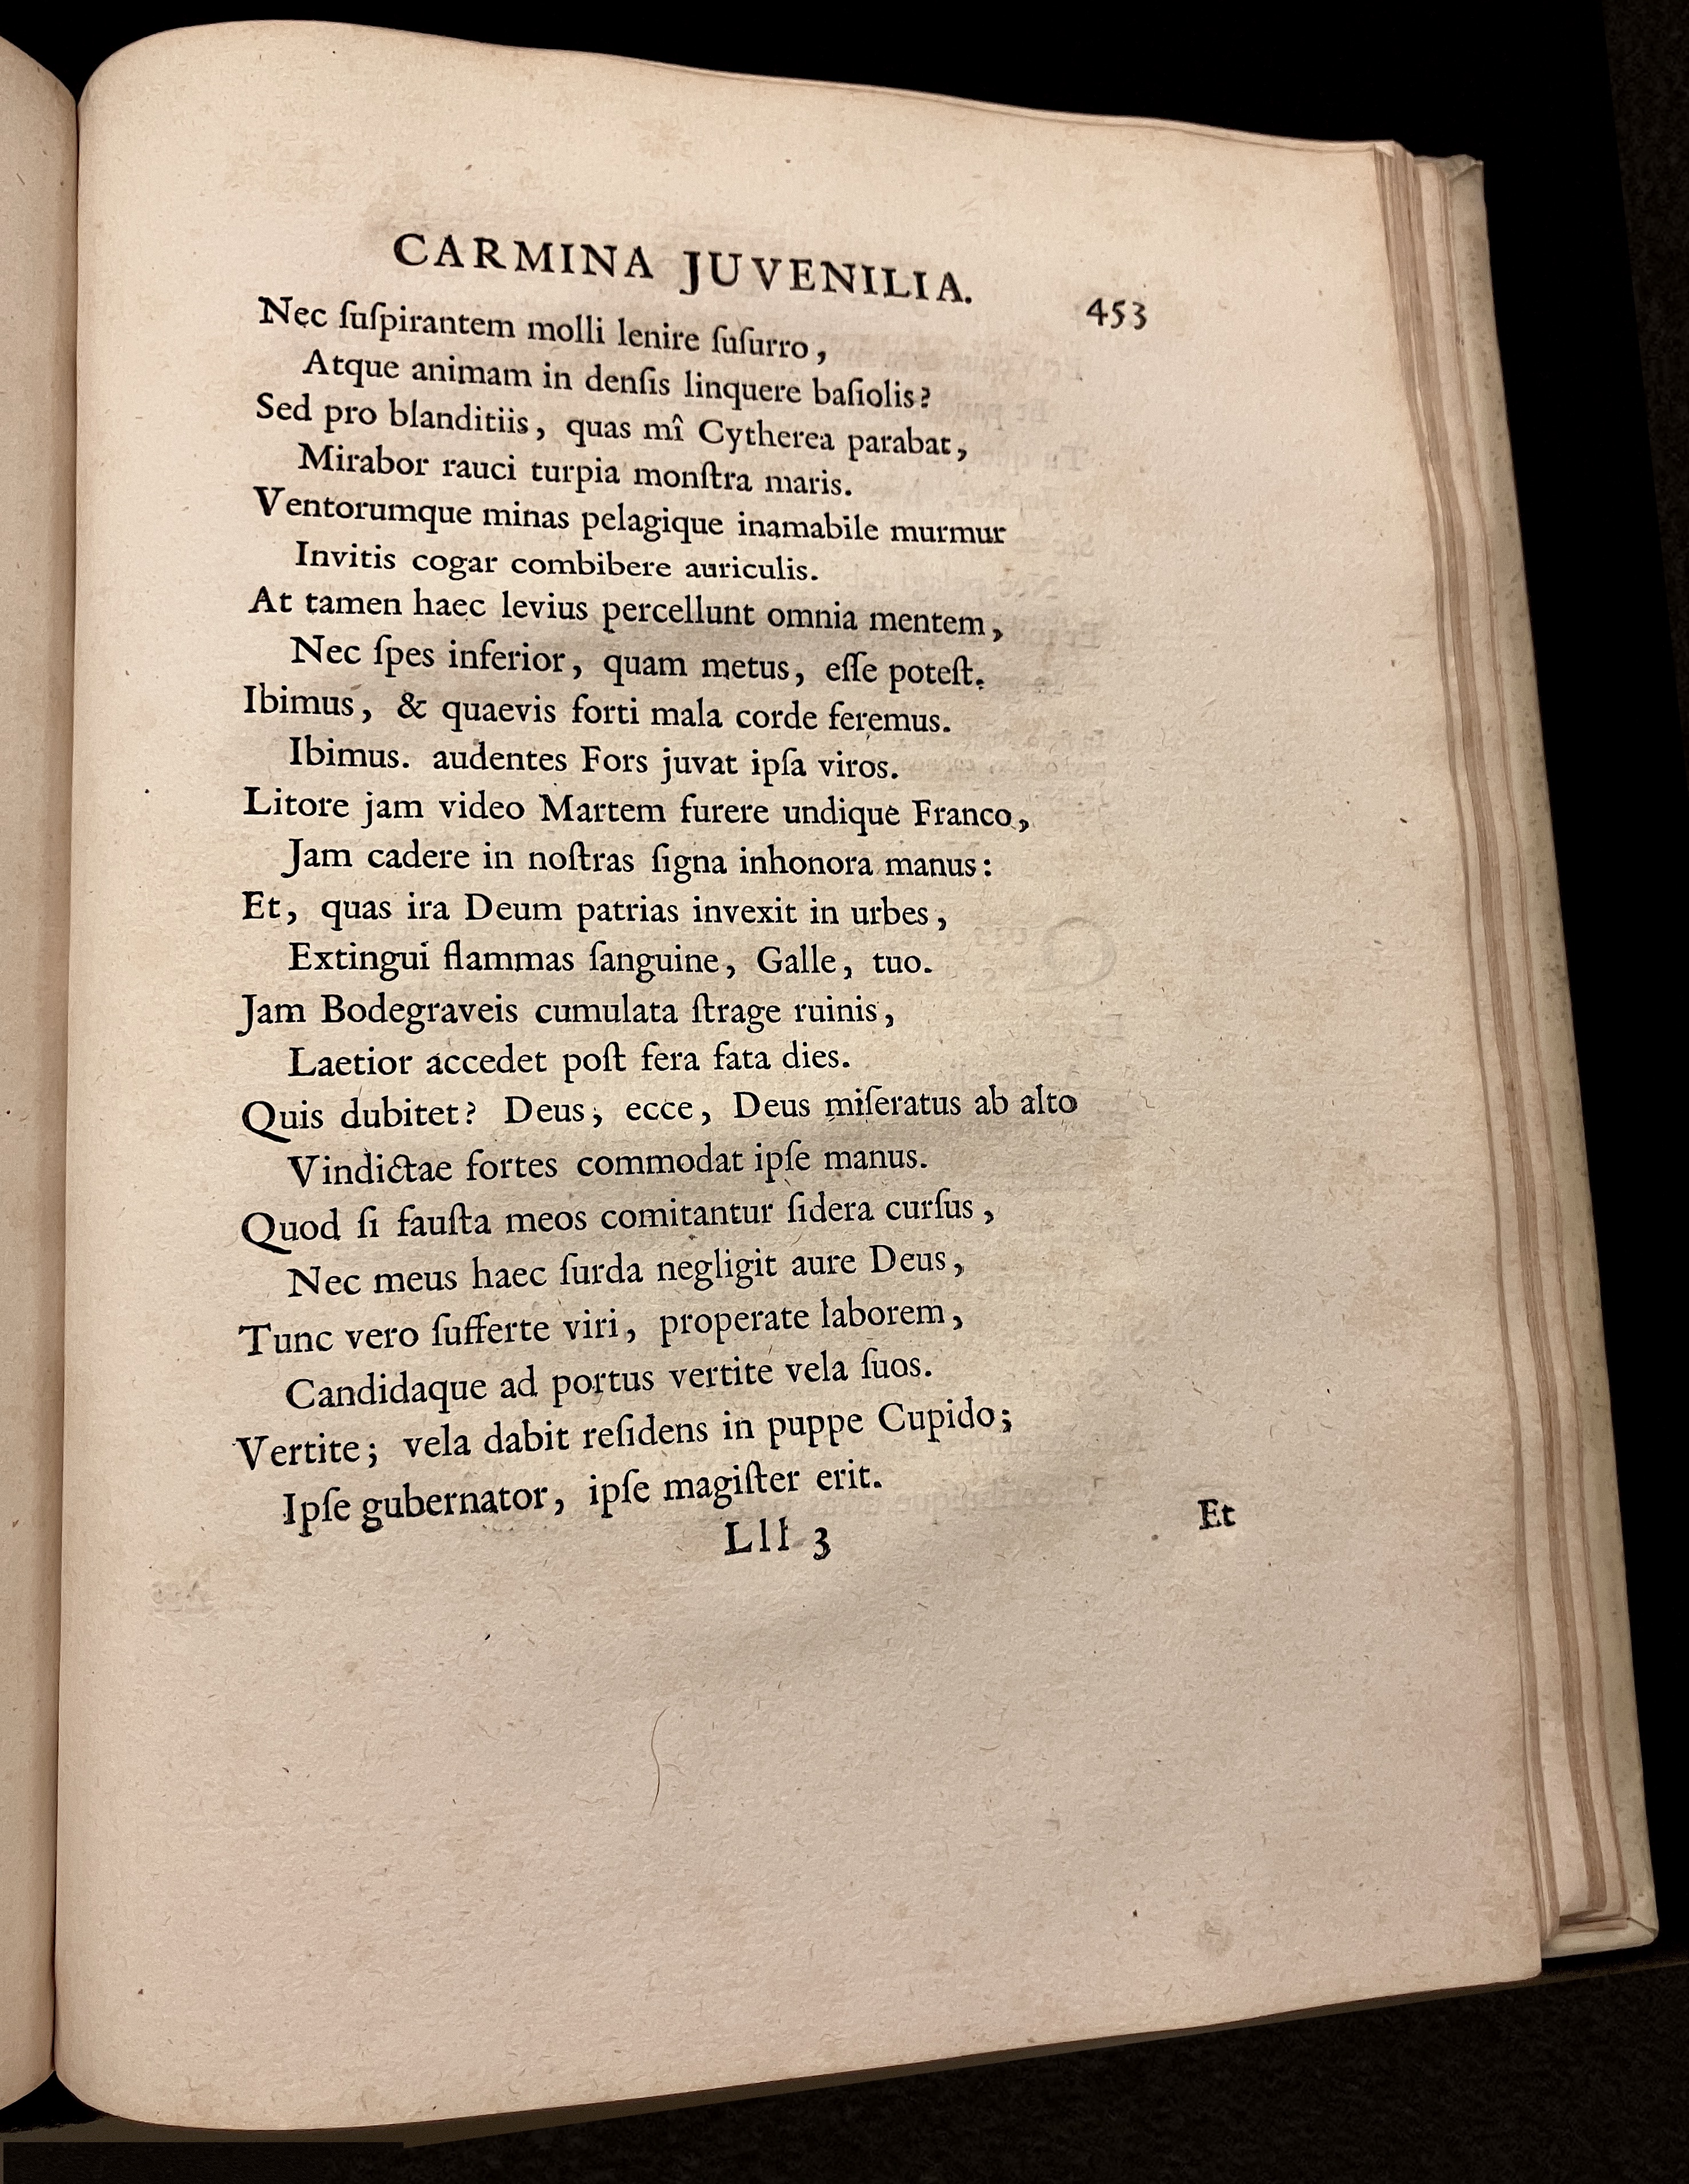 CARMINA JUVENILIA. 453
Nec ſuſpirantem molli lenire ſuſurro,
Atque animam in denſis linquere baſiolis?
Sed pro blanditiis, quas mî Cytherea parabat,
Mirabor rauci turpia monſtra maris.
Ventorumque minas pelagique inamabile murmur
Invitis cogar combibere auriculis.
At tamen haec levius percellunt omnia mentem,
Nec ſpes inferior, quam metus, eſſe poteſt.
Ibimus, & quaevis forti mala corde feremus.
Ibimus. audentes Fors juvat ipſa viros.
Litore jam video Martem furere undique Franco,
Jam cadere in noſtras ſigna inhonora manus:
Et, quas ira Deum patrias invexit in urbes,
Extingui flammas ſanguine, Galle, tuo.
Jam Bodegraveis cumulata ſtrage ruinis,
Laetior accedet poſt fera fata dies.
Quis dubitet? Deus, ecce, Deus miſeratus ab alto
Vindictae fortes commodat ipſe manus.
Quod ſi fauſta meos comitantur ſidera curſus,
Nec meus haec ſurda negligit aure Deus,
Tunc vero ſufferte viri, properate laborem,
Candidaque ad portus vertite vela ſuos.
Vertite; vela dabit reſidens in puppe Cupido;
Ipſe gubernator, ipſe magiſter erit.
Lll 3 Et